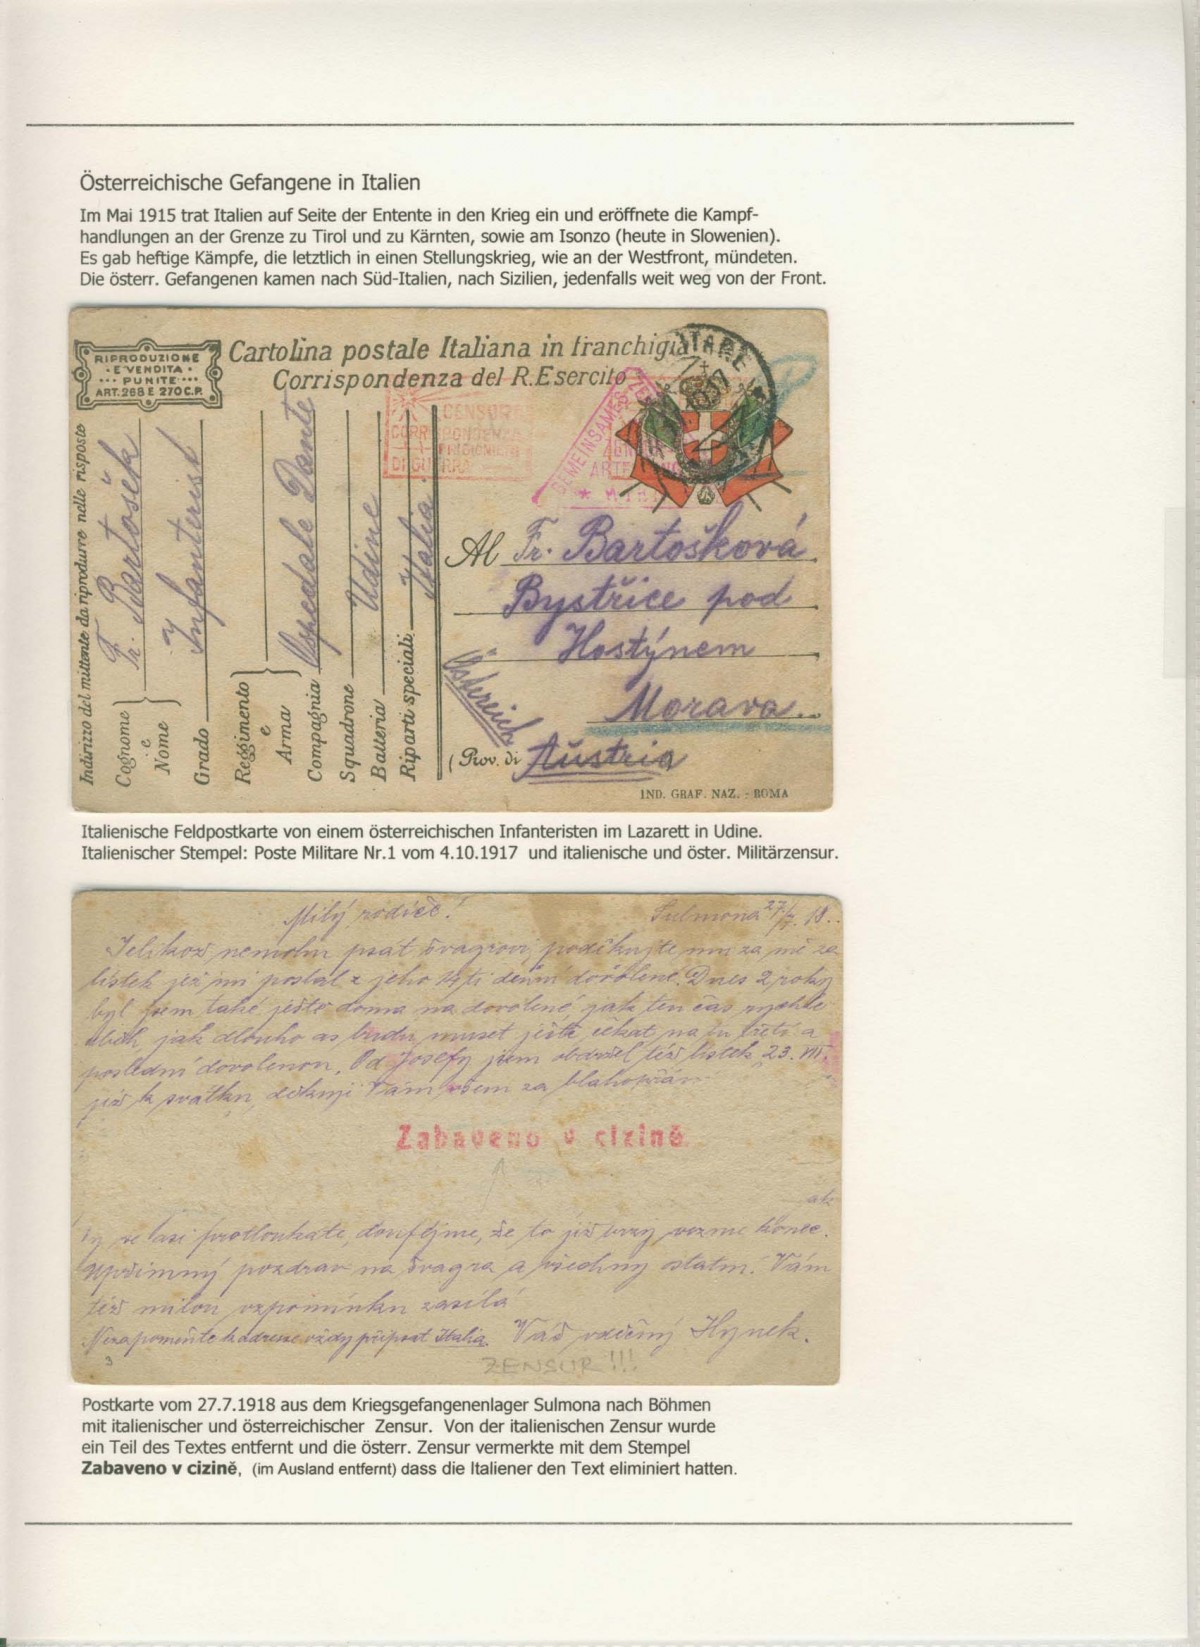 Österreichische Gefangene in Italien
Im Mai 1915 trat Italien auf Seite der Entente in den Krieg ein und eröffnete die Kampf-
handlungen an der Grenze zu Tirol und zu Kärnten, sowie am Isonzo (heute in Slowenien).
Es gab heftige Kämpfe, die letztlich in einen Stellungskrieg, wie an der Westfront, mündeten.
Die österr. Gefangenen kamen nach Süd-Italien, nach Sizilien, jedenfalls weit weg von der Front.
RIPRODUZIONE
E VENDITA
PUNITE
ART. 268 E 270 C.P.
Cartolina postale Italiana in franchigia
Corrispondenza del R. Esercito
CENSURA
CORRISPONDENZA
PRIGIONIERI
DI GUERRA
GEMEINSAMES
Indirizzo del mittente da riprodurre nelle risposte
Cognome e Nome Fr. Bartošek
Grado Infanterist
Reggimento e Arma
Compagnia Ospedale Dante
Squadrone
Batteria Udine
Riparti speciali Italia
Al Fr. Bartošková
Bystřice pod
Hostýnem
Morava
Östereich
(Prov. di Austria
IND. GRAF. NAZ. - ROMA
Italienische Feldpostkarte von einem österreichischen Infanteristen im Lazarett in Udine.
Italienischer Stempel: Poste Militare Nr.1 vom 4.10.1917 und italienische und öster. Militärzensur.
Milý rodiče! Sulmona 27/7. 18.
Jelikož nemohu psat švagrovi, poděkujte mu za mě za
lístek jež mi poslal z jeho 14ti denní dovolené. Dnes 2 roky
byl jsem také ještě doma na dovolené, jak ten čas rychle
jak dlouho as budu muset ještě čekat na tu třetí a
poslední dovolenou. Od Josefy jsem obdržel též lístek 23. VII.
již k svátku, děkuji Vám všem za blahopřání
Zabaveno v cizině
se asi protloukate, doufejme, že to již brzy vezme konec.
Upřimný pozdrav na švagra a všechny ostatní. Vám
též milou vzpomínku zasílá
Nezapomeňte k adrese vždy připsat Italia. Váš vděčný Hynek.
3
ZENSUR!!!
Postkarte vom 27.7.1918 aus dem Kriegsgefangenenlager Sulmona nach Böhmen
mit italienischer und österreichischer Zensur. Von der italienischen Zensur wurde
ein Teil des Textes entfernt und die österr. Zensur vermerkte mit dem Stempel
Zabaveno v cizině, (im Ausland entfernt) dass die Italiener den Text eliminiert hatten.